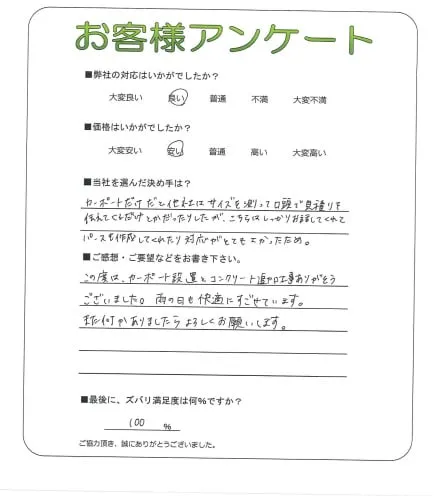 お客様アンケート
■弊社の対応はいかがでしたか？
大変良い 良い 普通 不満 大変不満
■価格はいかがでしたか？
大変安い 安い 普通 高い 大変高い
■当社を選んだ決め手は？
カーポートだけだと他社はサイズを測って口頭で見積りを
伝えてくるだけとかだったりしたが、こちらはしっかりお話してくれて
パースも作成してくれたり対応がとてもよかったため。
■ご感想・ご要望などをお書き下さい。
この度は、カーポート設置とコンクリート追加工事ありがとう
ございました。雨の日も快適にすごせています。
また何かありましたらよろしくお願いします。
■最後に、ズバリ満足度は何%ですか？
100 %
ご協力頂き、誠にありがとうございました。